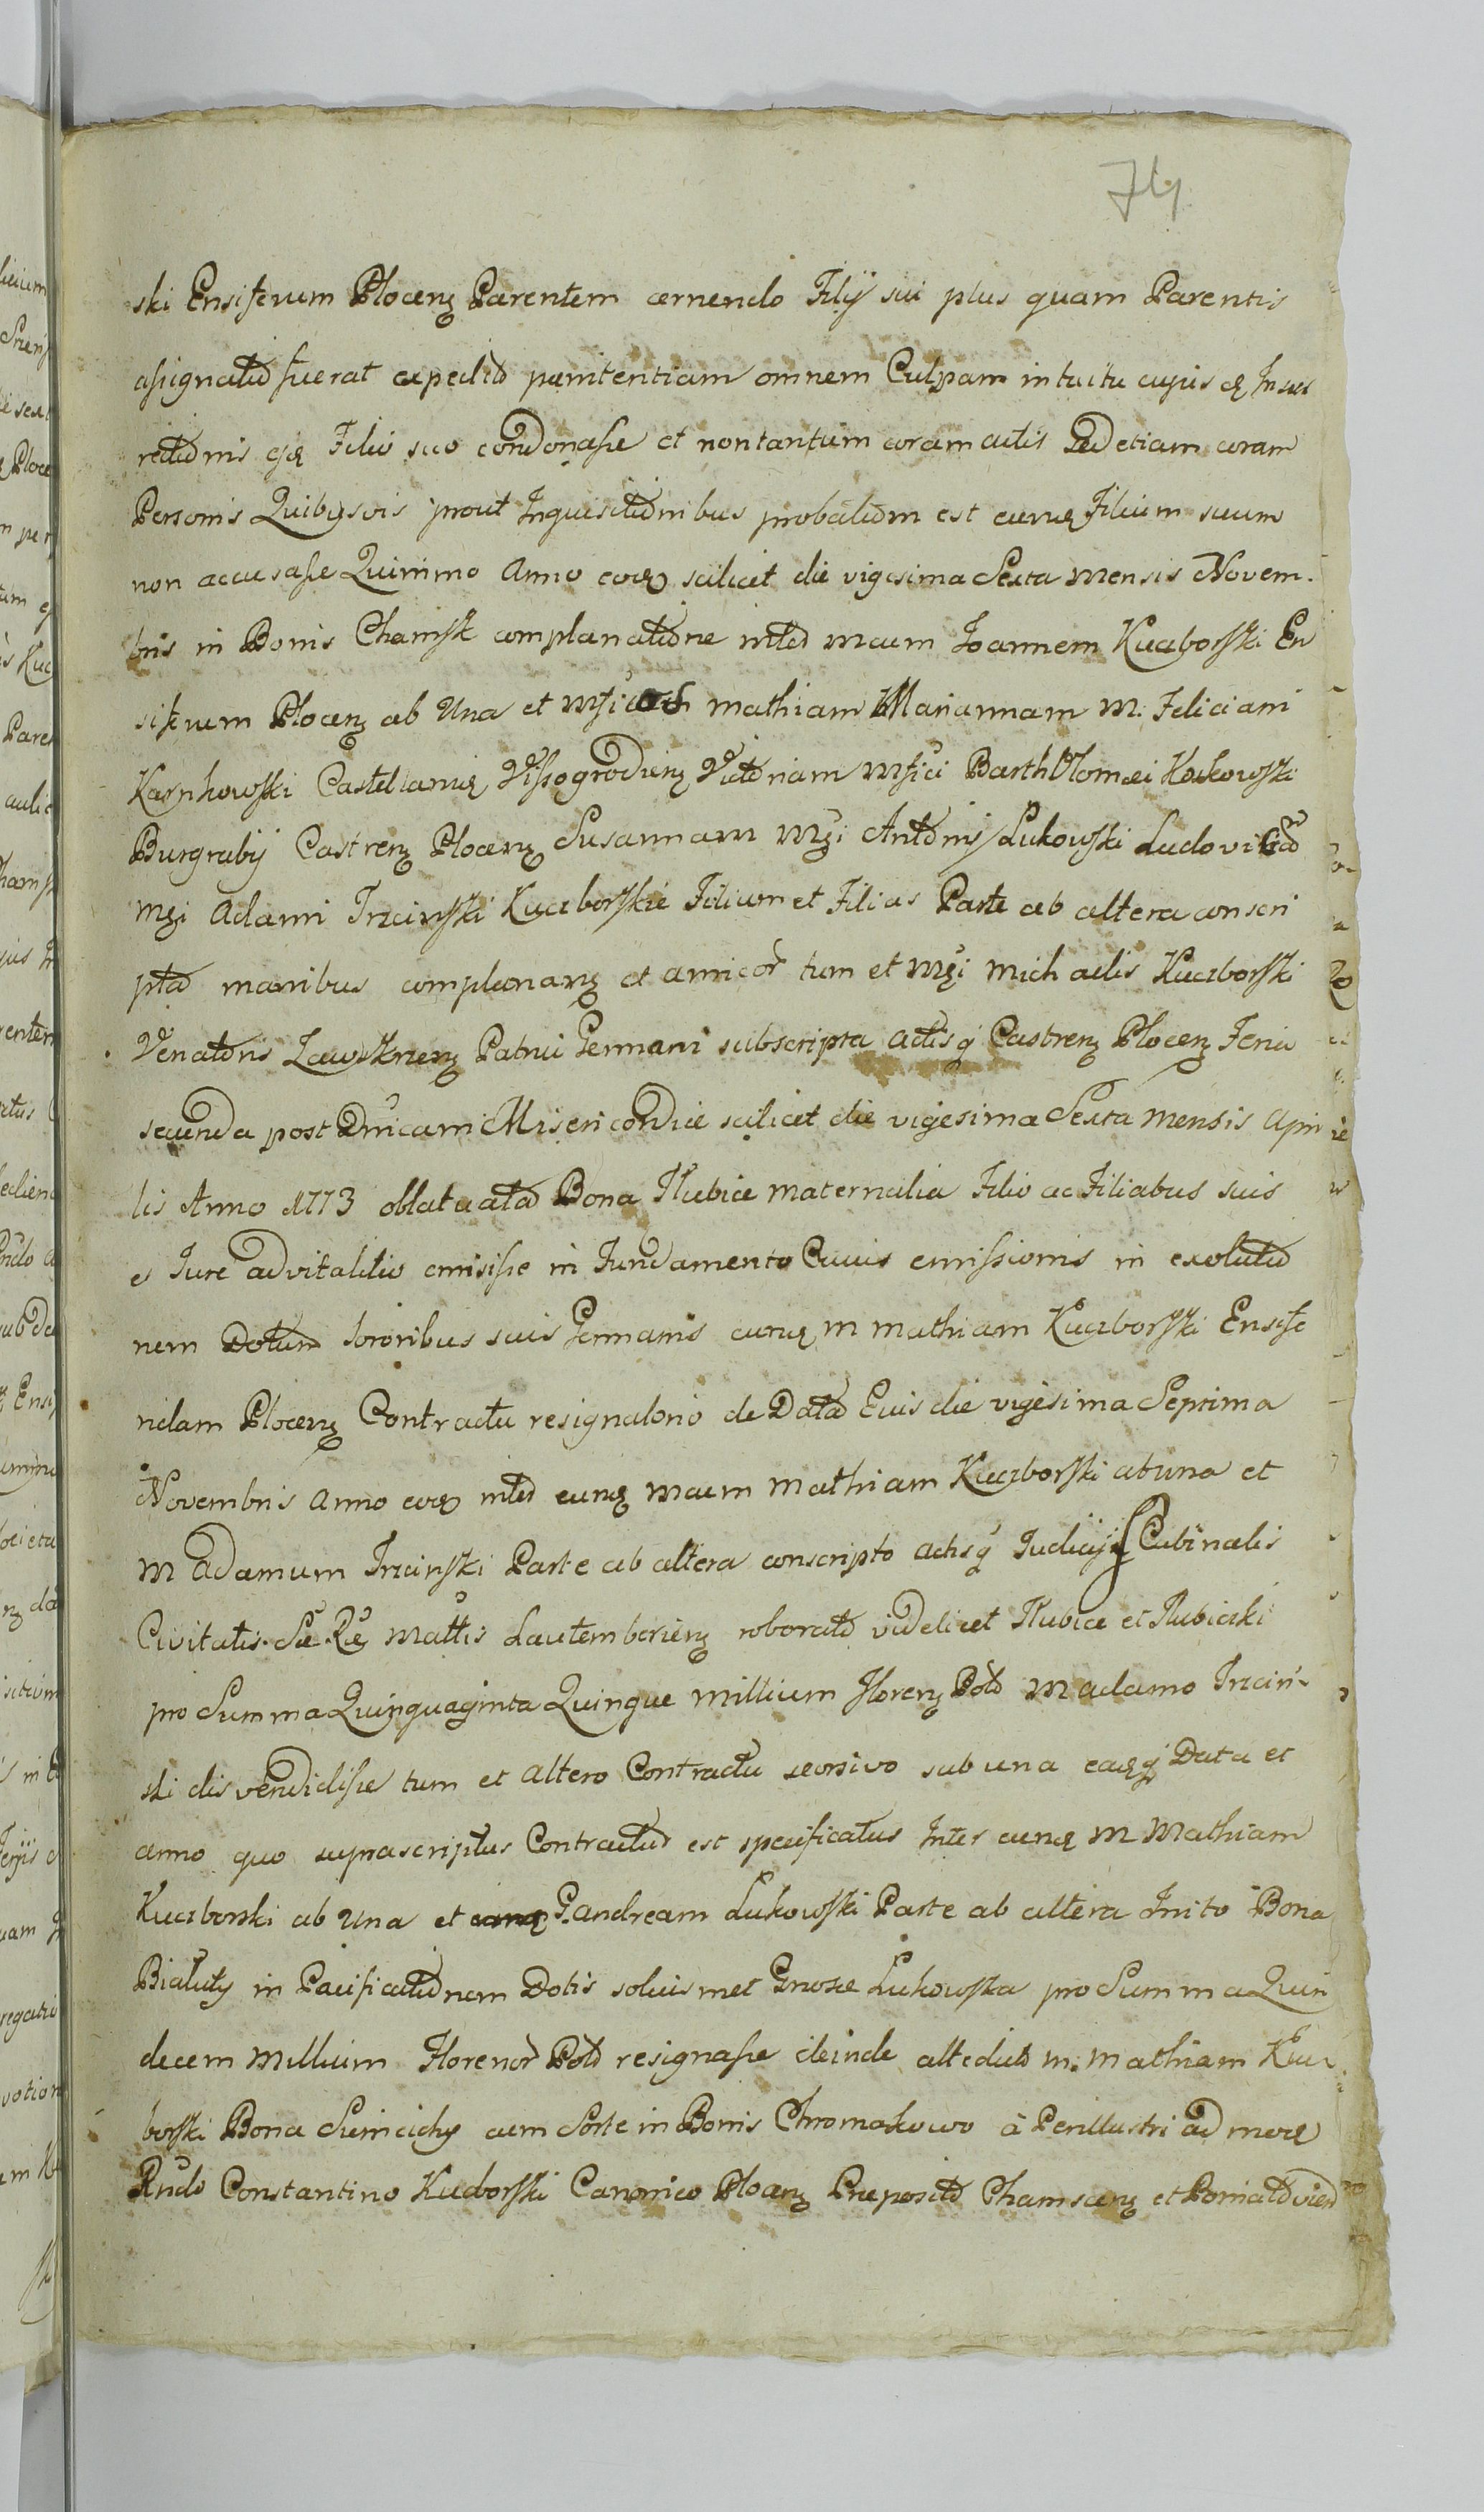 ski Ensiferum Plocenȝ Parentem cernendo Filij sui plus quam Parentis
assignata fuerat expedita pænitentiam omnem Culpam intuitu cujus Insur
Filio suo condonasse et non tantum coram actis sed etiam coram
Personis Quibusvis prout Inquisitionibus probatum est eunđ Filium suum
non accusasse Quinimo Anno eođ scilicet die vigesima Sexta mensis Novem.
bris in Bonis Chamsk complanatione inter Mcum Joannem Kuczborski En
siferum Plocenȝ ab Una et Mathiam Mariannam M. Feliciani
Karnkowski Castellanię Vissogrodienȝ Victoriam Msfici Barthlomæi Koskowski
Burgrabij Castrenȝ Plocenȝ Susannam Mgi Antonij Lukowski Ludovicā
Mgi Adami Trzcinski Kuczborskie Filium et Filias Parte ab altera conscri
pta manibus complananȝ et amicoř tum et Mgi Michaelis Kuczborski
Venatoris Zawskrzenȝ Patrui Germani subscripta actisq̃ Castrenȝ Plocenȝ Feria
secunda post Dnicam Misericordiæ scilicet die vigesima Sexta Mensis Apri
lis Anno 1773 oblatuata Bona Hubice maternalia Filio ac Filiabus suis
e Jure advitalitio emisisse in Fundamento Cuius emissionis in exolutio
nem Dotium Sororibus suis Germanis eunđ M Mathiam Kuczborski Ensife
ridam Plocenȝ Contractu resignatorio de Data Eius die vigesima Septima
Novembris Anno eođ inter eunđ Mcum Mathiam Kuczborski ab una et
M Adamum Trzcinski Parte ab altera conscripto actisq̃ Judicij Cabinalis
Civitatis Sæ Ræ Mattis Lautemberienȝ roborato videlicet Hubice et Hubiczki
pro Summa Quinquaginta Quinque Millium Florenȝ Pol M Adamo Trzcin-
ski disvendidisse tum et altero Contractu seorsivo sub una eađq̃ Data et
anno quo suprascriptus Contractus est specificatus Inter eunđ M Mathiam
Kuczborski ab Una et G. Andream Lukowski Parte ab altera Inito Bona
Bialuty in Pacificationem Dotis Gnosæ Lukowska pro Summa Quin
decem Millium Florenoř Pol resignasse deinde M. Mathiam Kucz
borski Bona Suincichy cum Sorte in Bonis Chromakowo à Perillustri ad modđ
Rndo Constantino Kuczborski Canonico Plocenȝ Præposito Chamscenȝ et Poniatovien